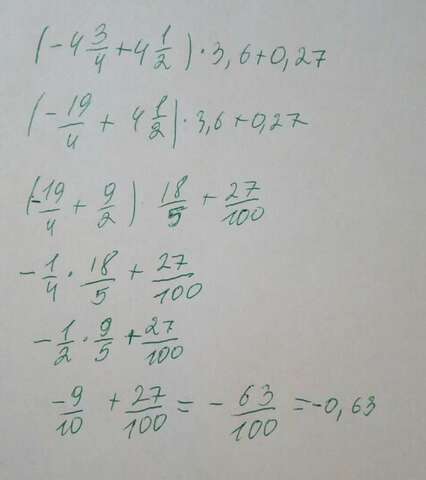 (-4 3/4 + 4 1/2) · 3,6 + 0,27
(-19/4 + 4 1/2) · 3,6 + 0,27
(-19/4 + 9/2) · 18/5 + 27/100
-1/4 · 18/5 + 27/100
-1/2 · 9/5 + 27/100
-9/10 + 27/100 = -63/100 = -0,63